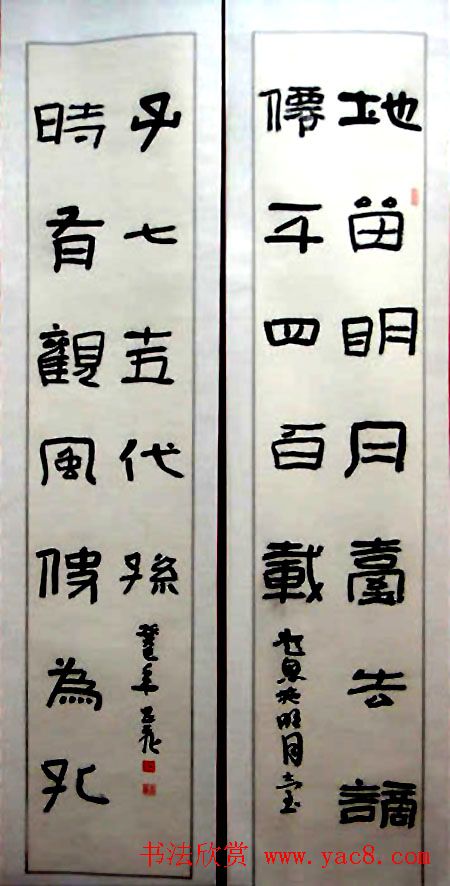 地留明月臺去謫
僊千四百載
時有觀風使為孔
子七十五代孫
书法欣赏 www.yac8.com